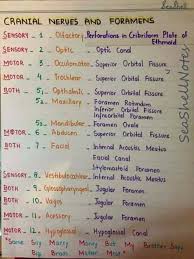 CRANIAL NERVES AND FORAMENS
SENSORY - 1 - Olfactory - Perforations in Cribriform Plate of Ethmoid
SENSORY - 2 - Optic - Optic Canal
MOTOR - 3 - Oculomotor - Superior Orbital Fissure
MOTOR - 4 - Trochlear - Superior Orbital Fissure
BOTH - 5 - Superior Orbital Fissure
5ii- Maxillary - Foramen Rotundum
Inferior Orbital Fissure
Infraorbital Foramen
Foramen Ovale
MOTOR - 6 - Abducen - Superior Orbital Fissure
BOTH - 7 - Facial - Internal Acoustic Meatus
Facial Canal
Stylomastoid Foramen
SENSORY - 8 - Vestibulocochlear - Internal Acoustic Meatus
BOTH - 9 - Glossopharyngeal - Jugular Foramen
BOTH - 10 - Vagus - Jugular Foramen
MOTOR - 11 - Jugular Foramen
MOTOR - 12 - Hypoglossal - Hypoglossal Canal
*Some Say Marry Money But My Brother Says
Big Brain Matter Most *
SenShellNotes